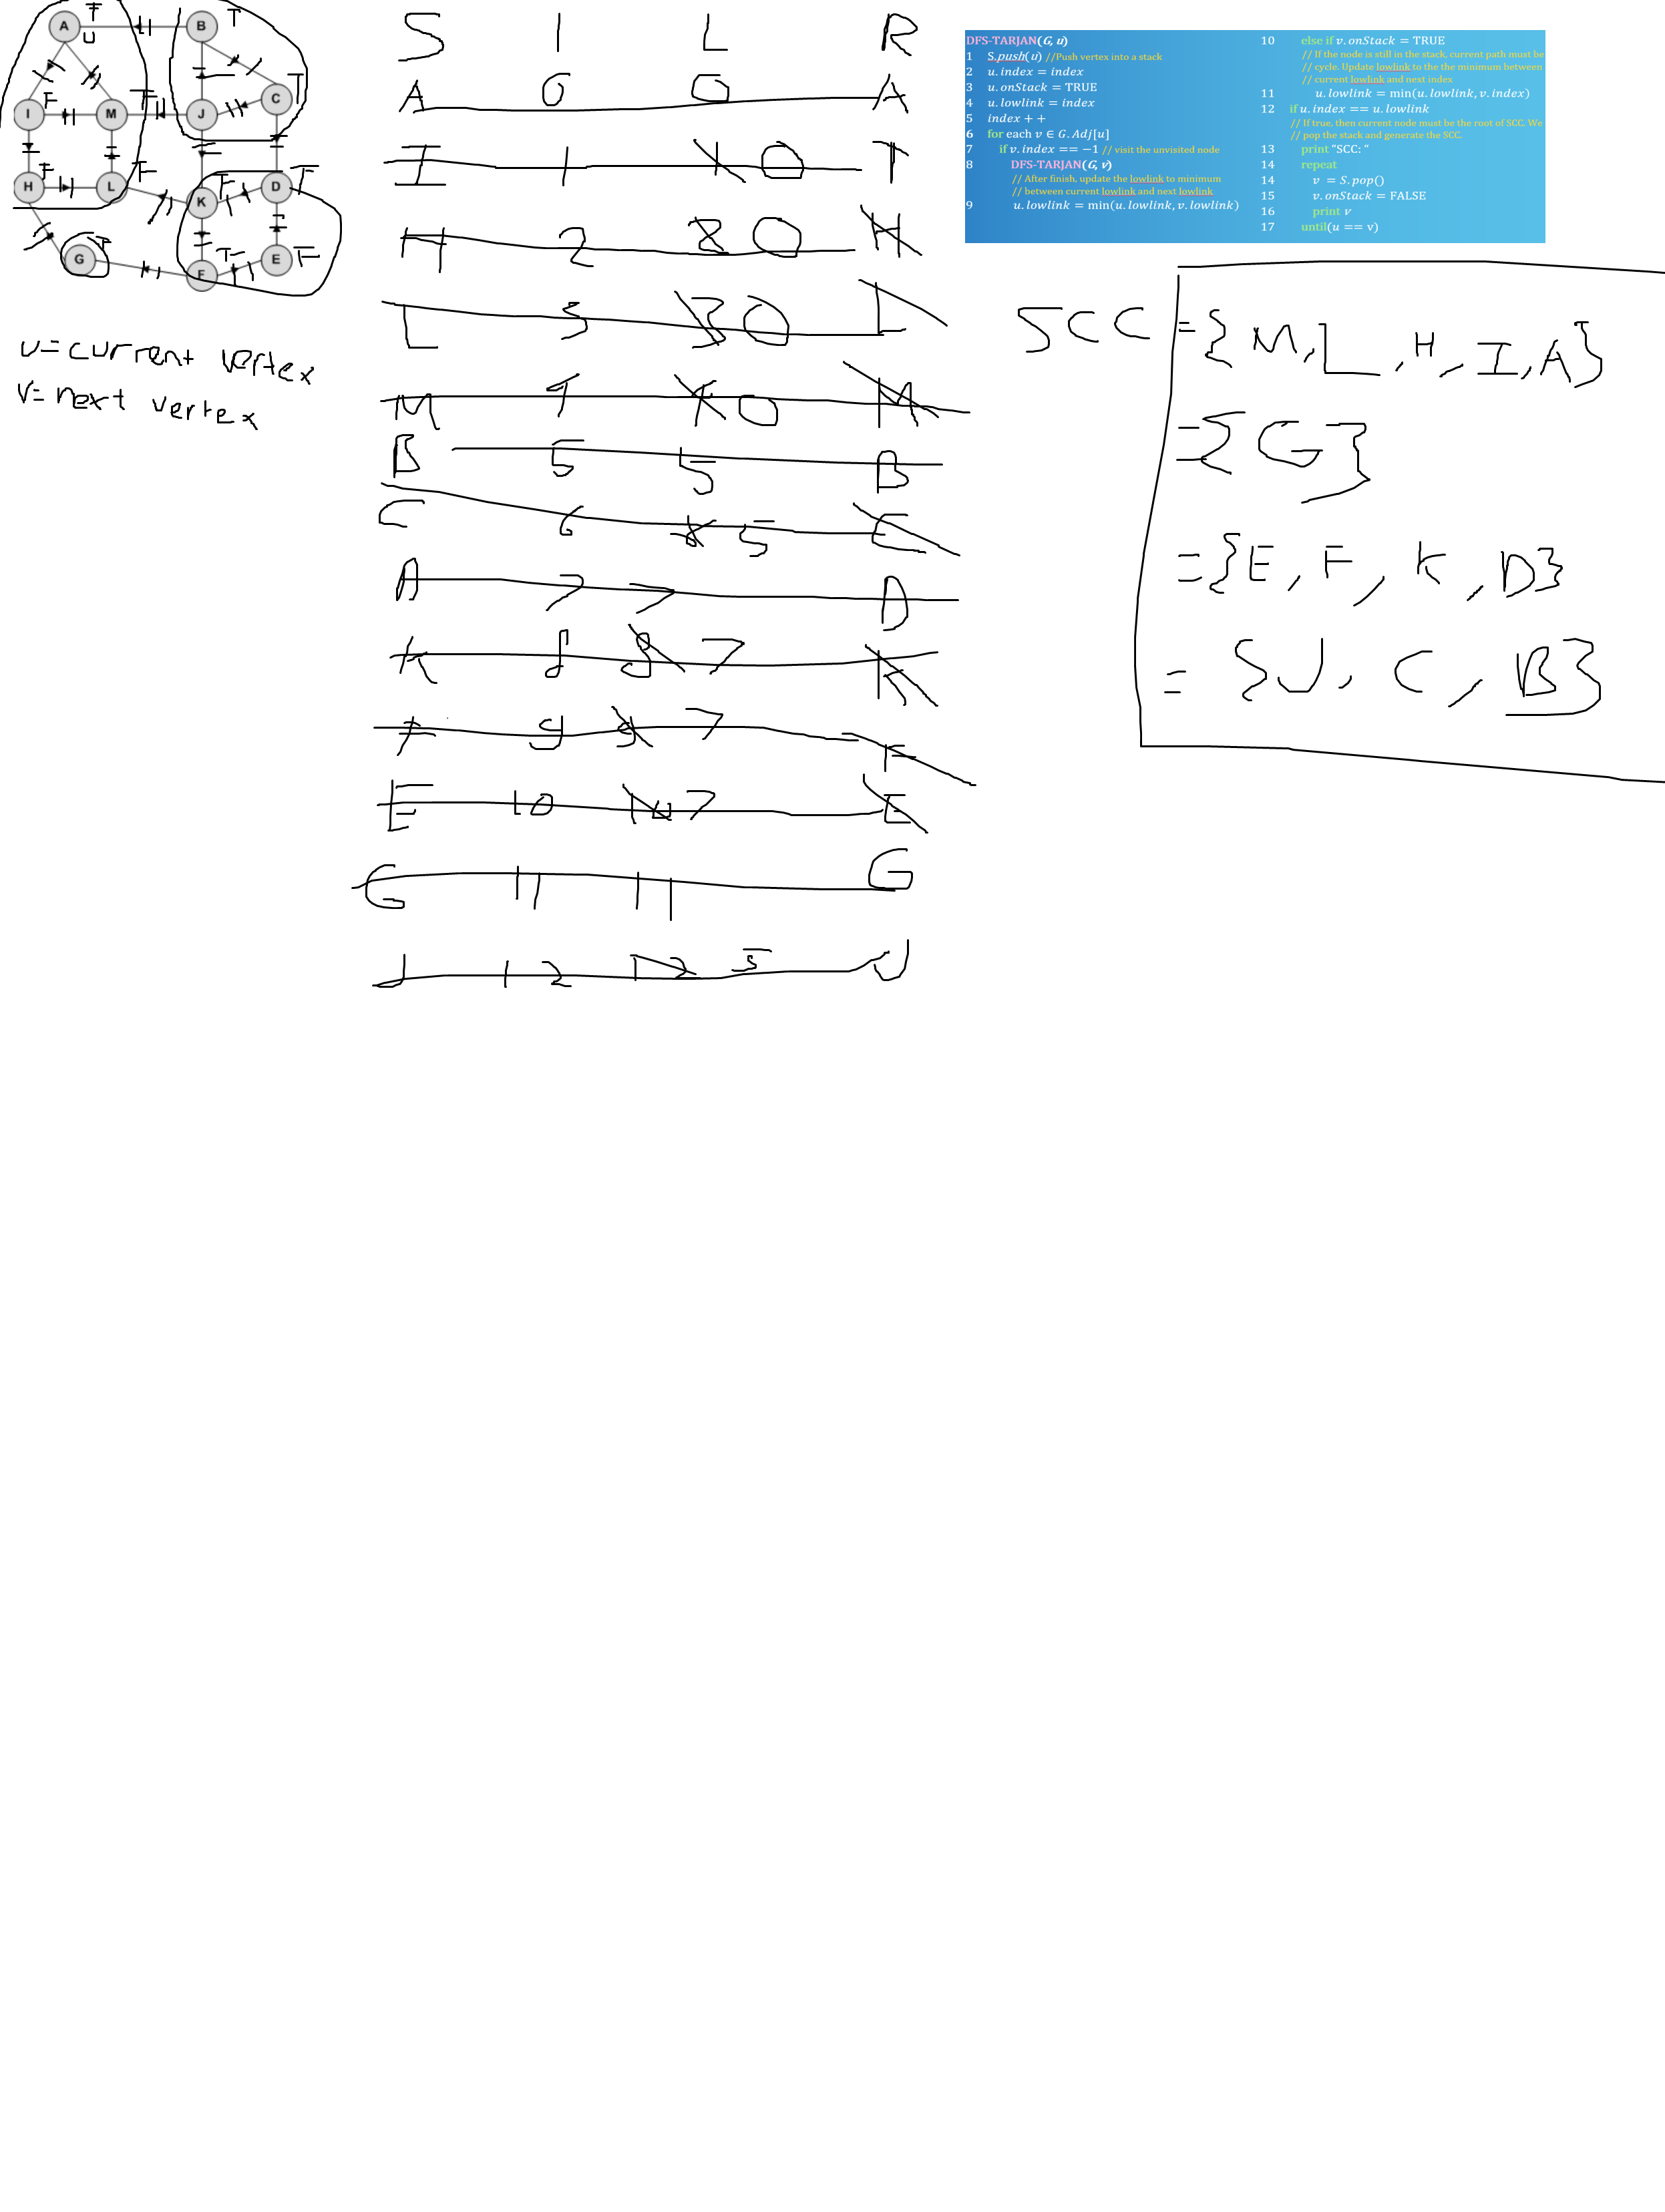 A
B
C
I
M
J
H
L
K
D
G
F
E
u
T
T
F
F
F
F
F
F
u = current vertex
v = next vertex
S I L R
A 0 0 A
I 1 1 0 I
H 2 2 0 H
L 3 3 0 L
M 4 4 0 M
B 5 5 B
C 6 6 5 C
D 7 7 D
K 8 8 7 K
F 9 9 7 F
E 10 10 7 E
G 11 11 G
J 12 12 5 J
DFS-TARJAN(G, u)
1 S.push(u) //Push vertex into a stack
2 u.index = index
3 u.onStack = TRUE
4 u.lowlink = index
5 index + +
6 for each v ∈ G.Adj[u]
7 if v.index == −1 // visit the unvisited node
8 DFS-TARJAN(G, v)
// After finish, update the lowlink to minimum
// between current lowlink and next lowlink
9 u.lowlink = min(u.lowlink, v.lowlink)
10 else if v.onStack = TRUE
// If the node is still in the stack, current path must be
// cycle. Update lowlink to the the minimum between
// current lowlink and next index
11 u.lowlink = min(u.lowlink, v.index)
12 if u.index == u.lowlink
// If true, then current node must be the root of SCC. We
// pop the stack and generate the SCC.
13 print "SCC: "
14 repeat
14 v = S.pop()
15 v.onStack = FALSE
16 print v
17 until(u == v)
SCC = {M, L, H, I, A}
= {G}
= {E, F, K, D}
= {J, C, B}